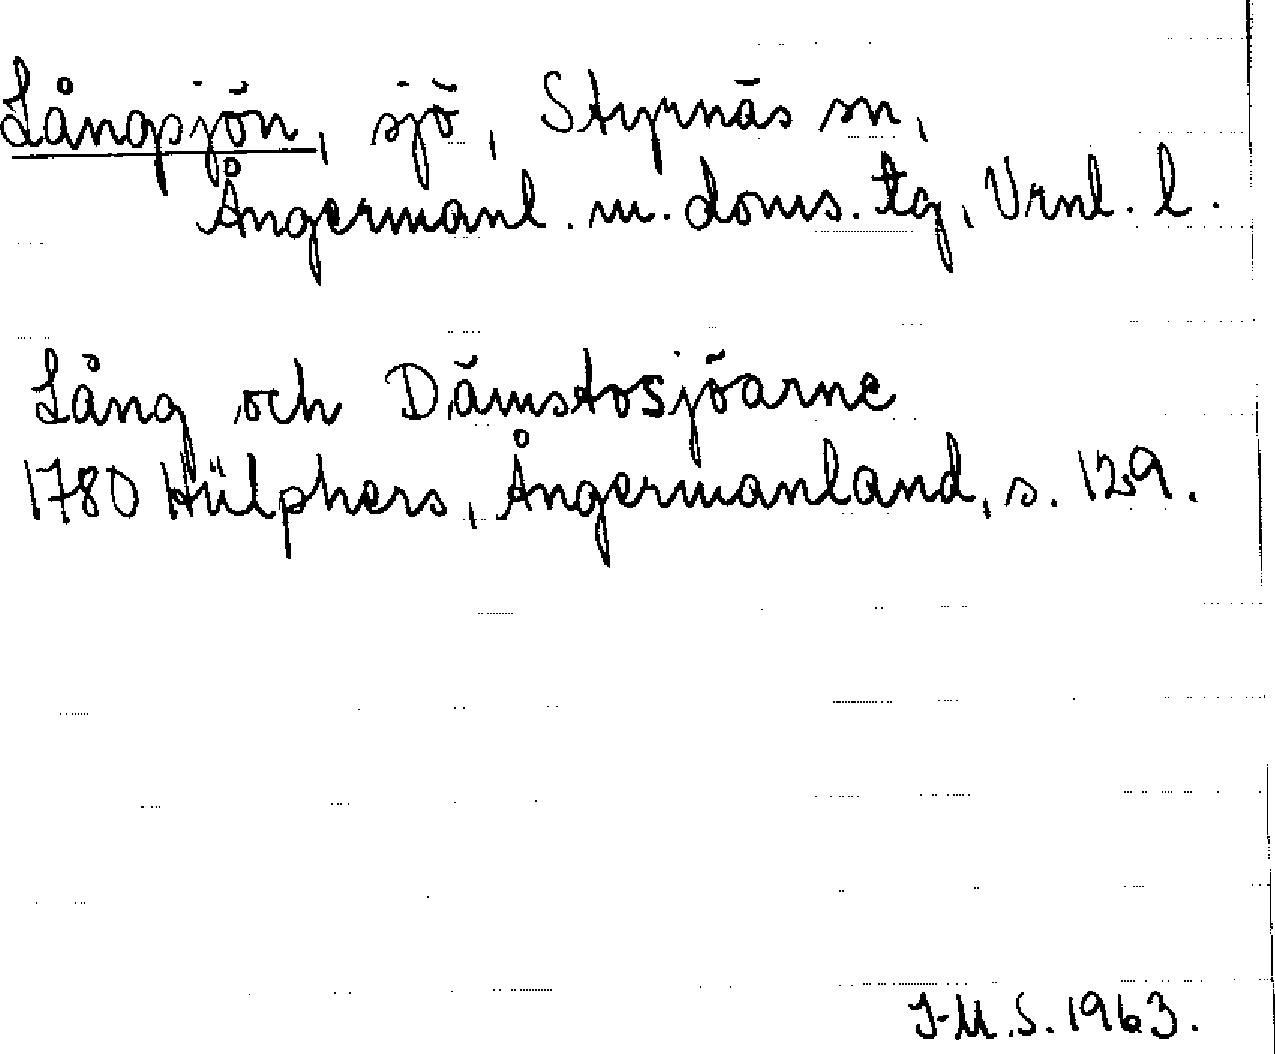 Långsjön, sjö, Styrnäs sn,
Ångermanl. m. doms. tg, Vrnl. l.
Lång och Dämstosjöarne
1780 Hülphers, Ångermanland, s. 129.
I-M.S. 1963.